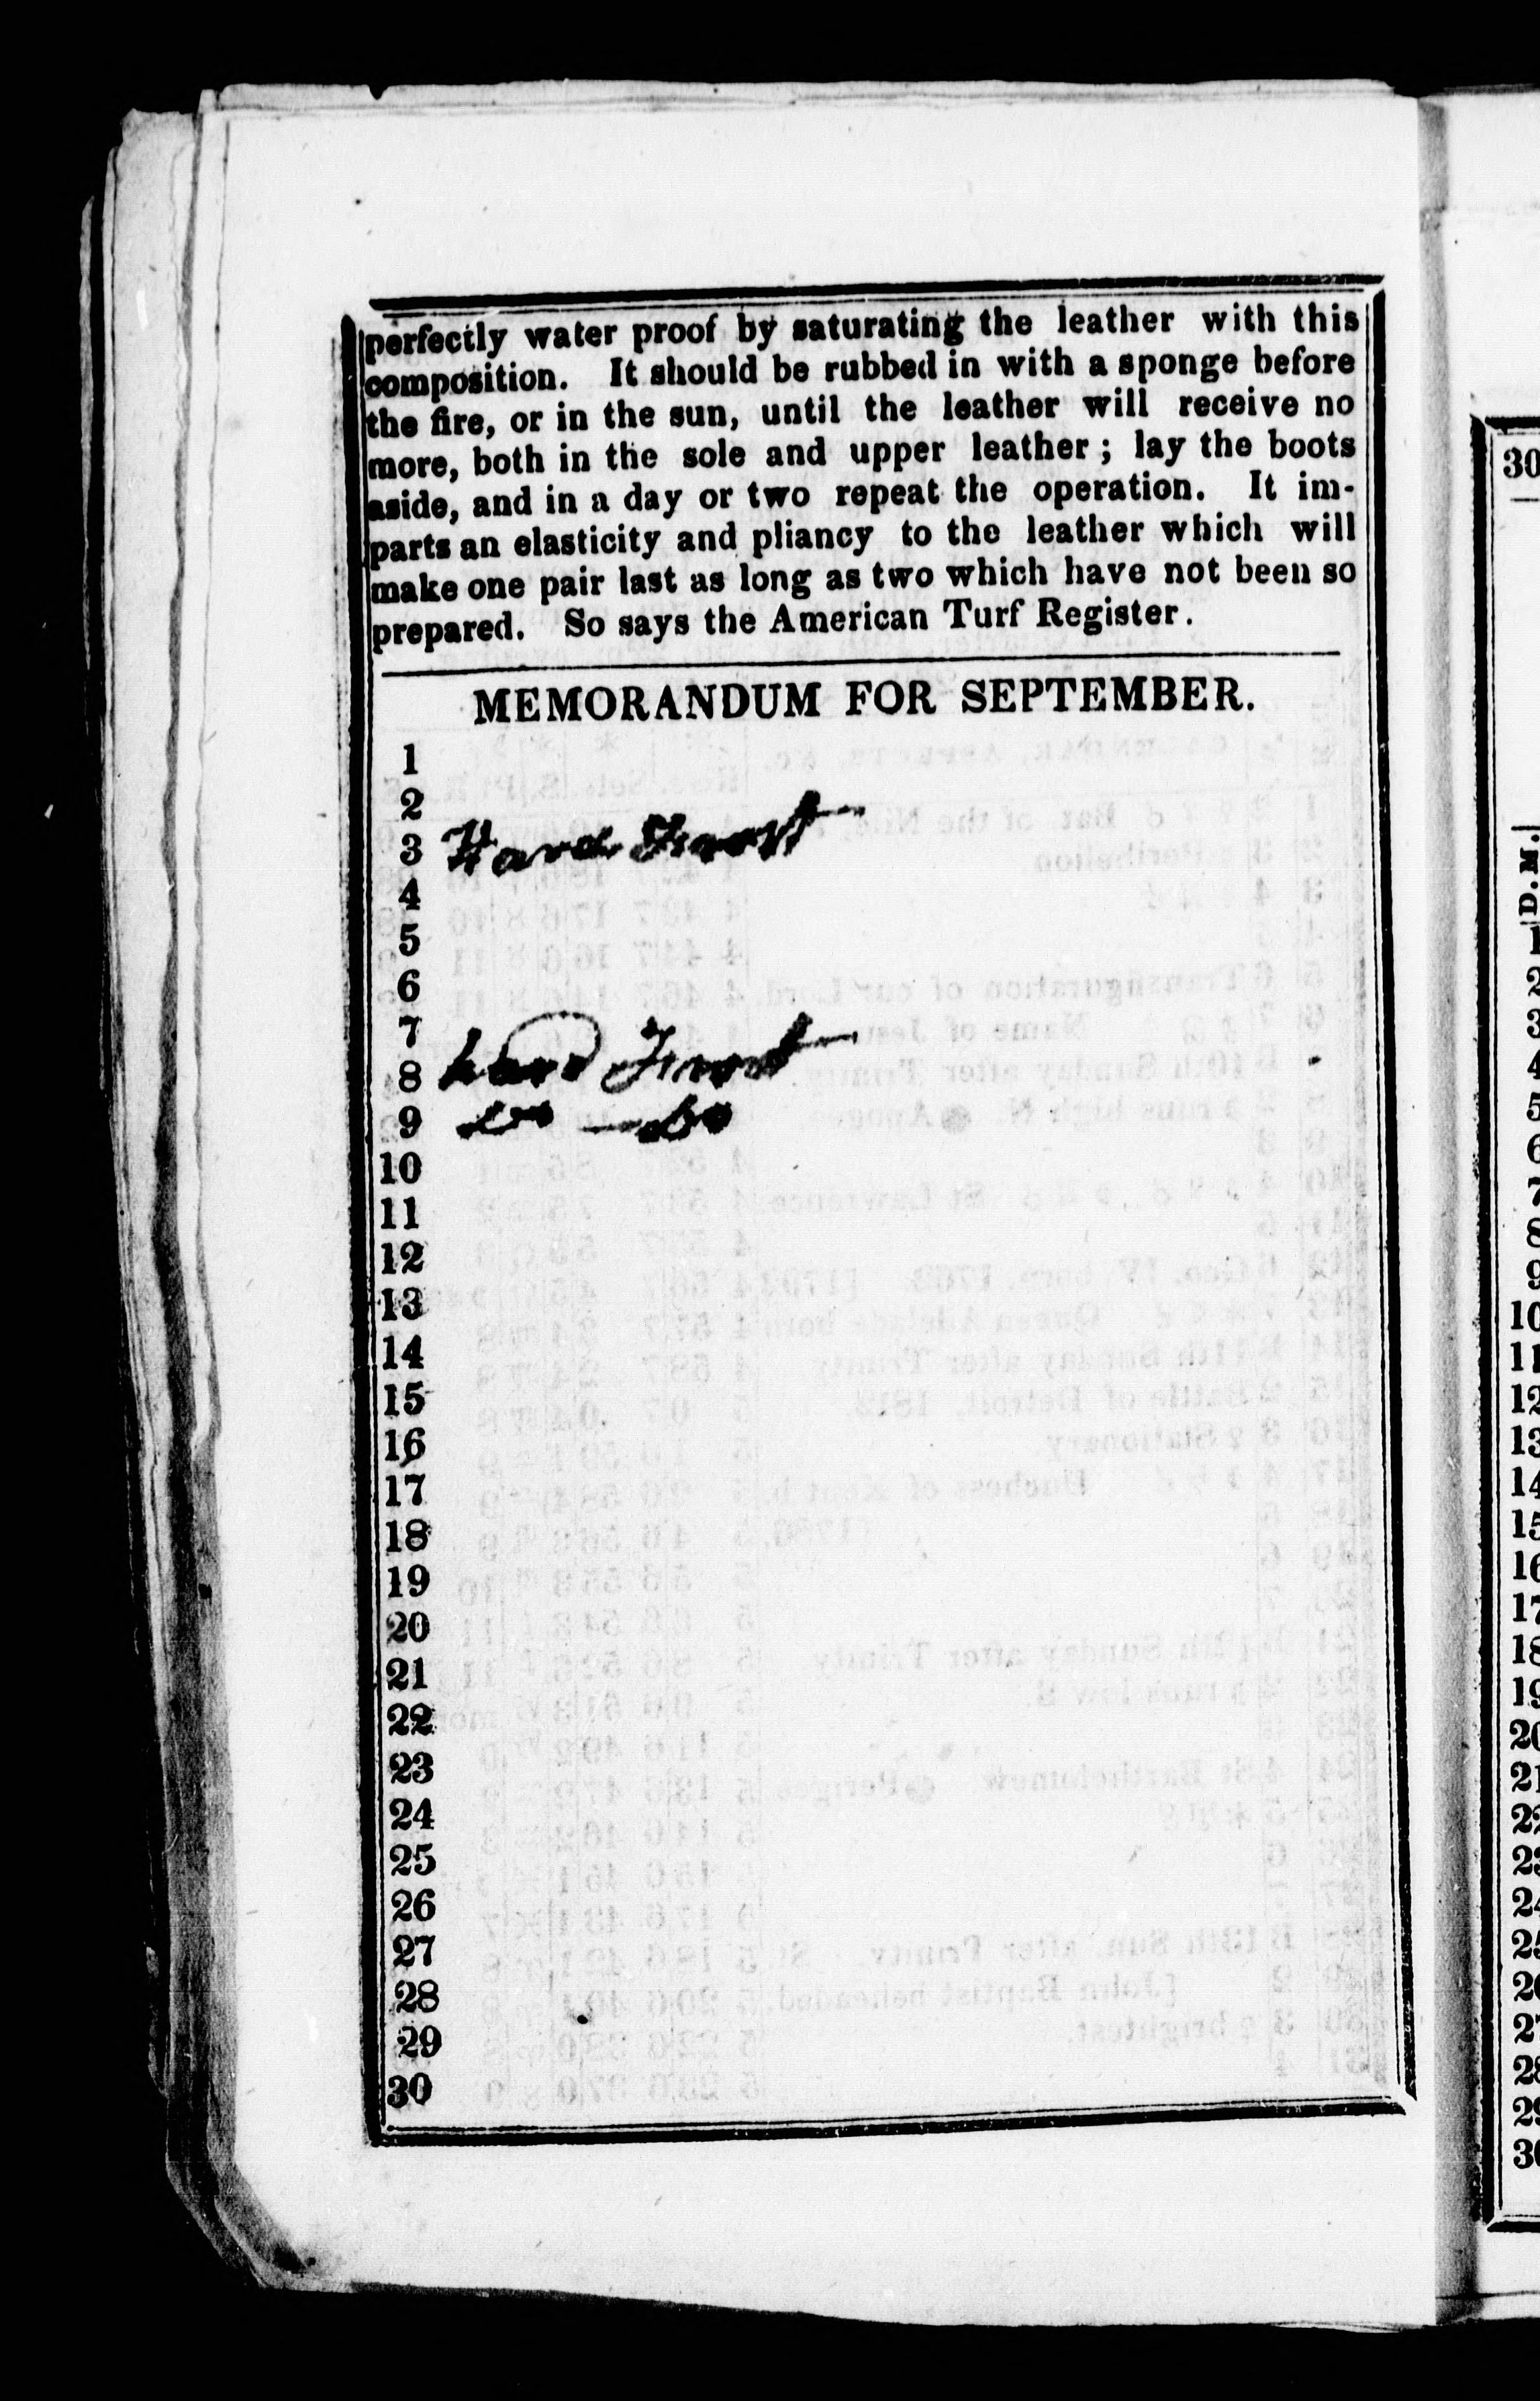 perfectly water proof by saturating the leather with this
composition. It should be rubbed in with a sponge before
the fire, or in the sun, until the leather will receive no
more, both in the sole and upper leather; lay the boots
aside, and in a day or two repeat the operation. It im-
parts an elasticity and pliancy to the leather which will
make one pair last as long as two which have not been so
prepared. So says the American Turf Register.
MEMORANDUM FOR SEPTEMBER.
1
2
3 Hard Frost
4
5
6
7
8 hard Frost
9 Do - Do
10
11
12
13
14
15
16
17
18
19
20
21
22
23
24
25
26
27
28
29
30
30
D.M.
1
2
3
4
5
6
7
8
9
10
11
12
13
14
15
16
17
18
19
20
21
22
23
24
25
26
27
28
29
30